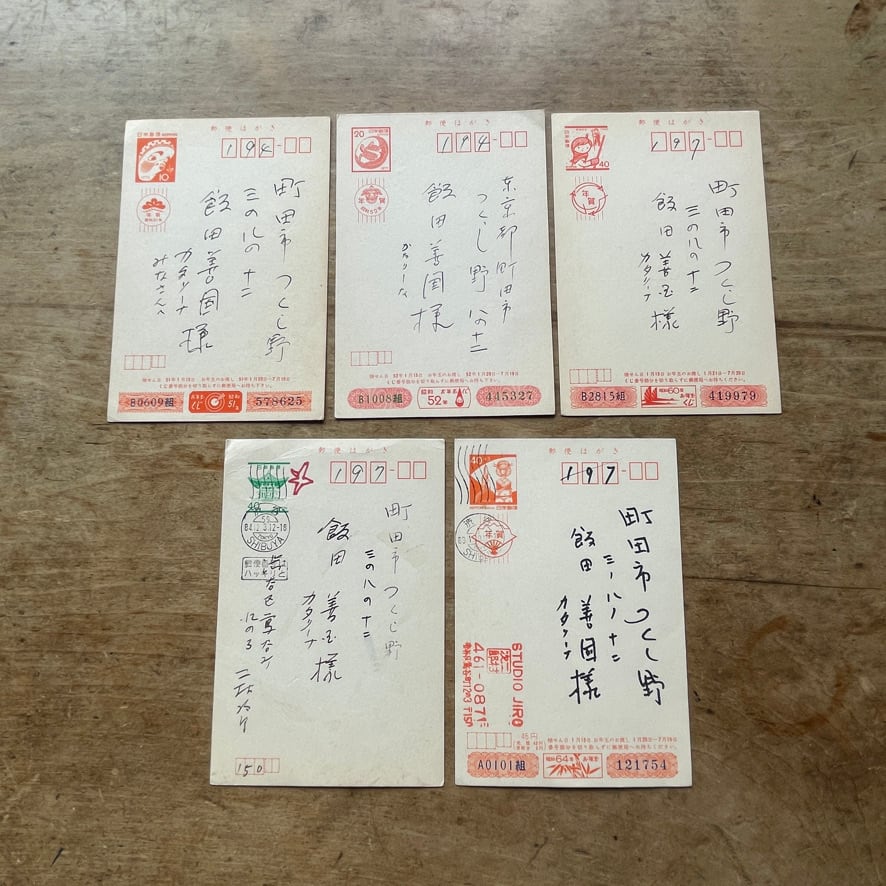 郵便はがき
日本郵便 NIPPON
10
194
町田市つくし野
三の八の十二
飯田善国様
カタリーナ
みなさんへ
年賀
くじ番号部分を切り取らずに郵便局へお持ち下さい。
B0609組
お年玉
くじ
昭和
51年
578625
郵便はがき
20
日本郵便
194
東京都町田市
つくし野 八の十二
飯田善国様
カタリーナ
年賀
昭和52年
B1008組
昭和
52年
445327
郵便はがき
日本郵便
40
197
町田市つくし野
三の八の十二
飯田善国様
カタリーナ
年賀
B2815組
昭和60年
くじ
419979
郵便はがき
40
197
SHIBUYA
TOKYO
町田市つくし野
三の八の十二
飯田善国様
カタリーナ
150
郵便はがき
40
日本郵便
197
町田市つくし野
三ノ八ノ十二
飯田善国様
カタリーナ
年賀
STUDIO JIRO
461-0871
A0101組
昭和64年
121754